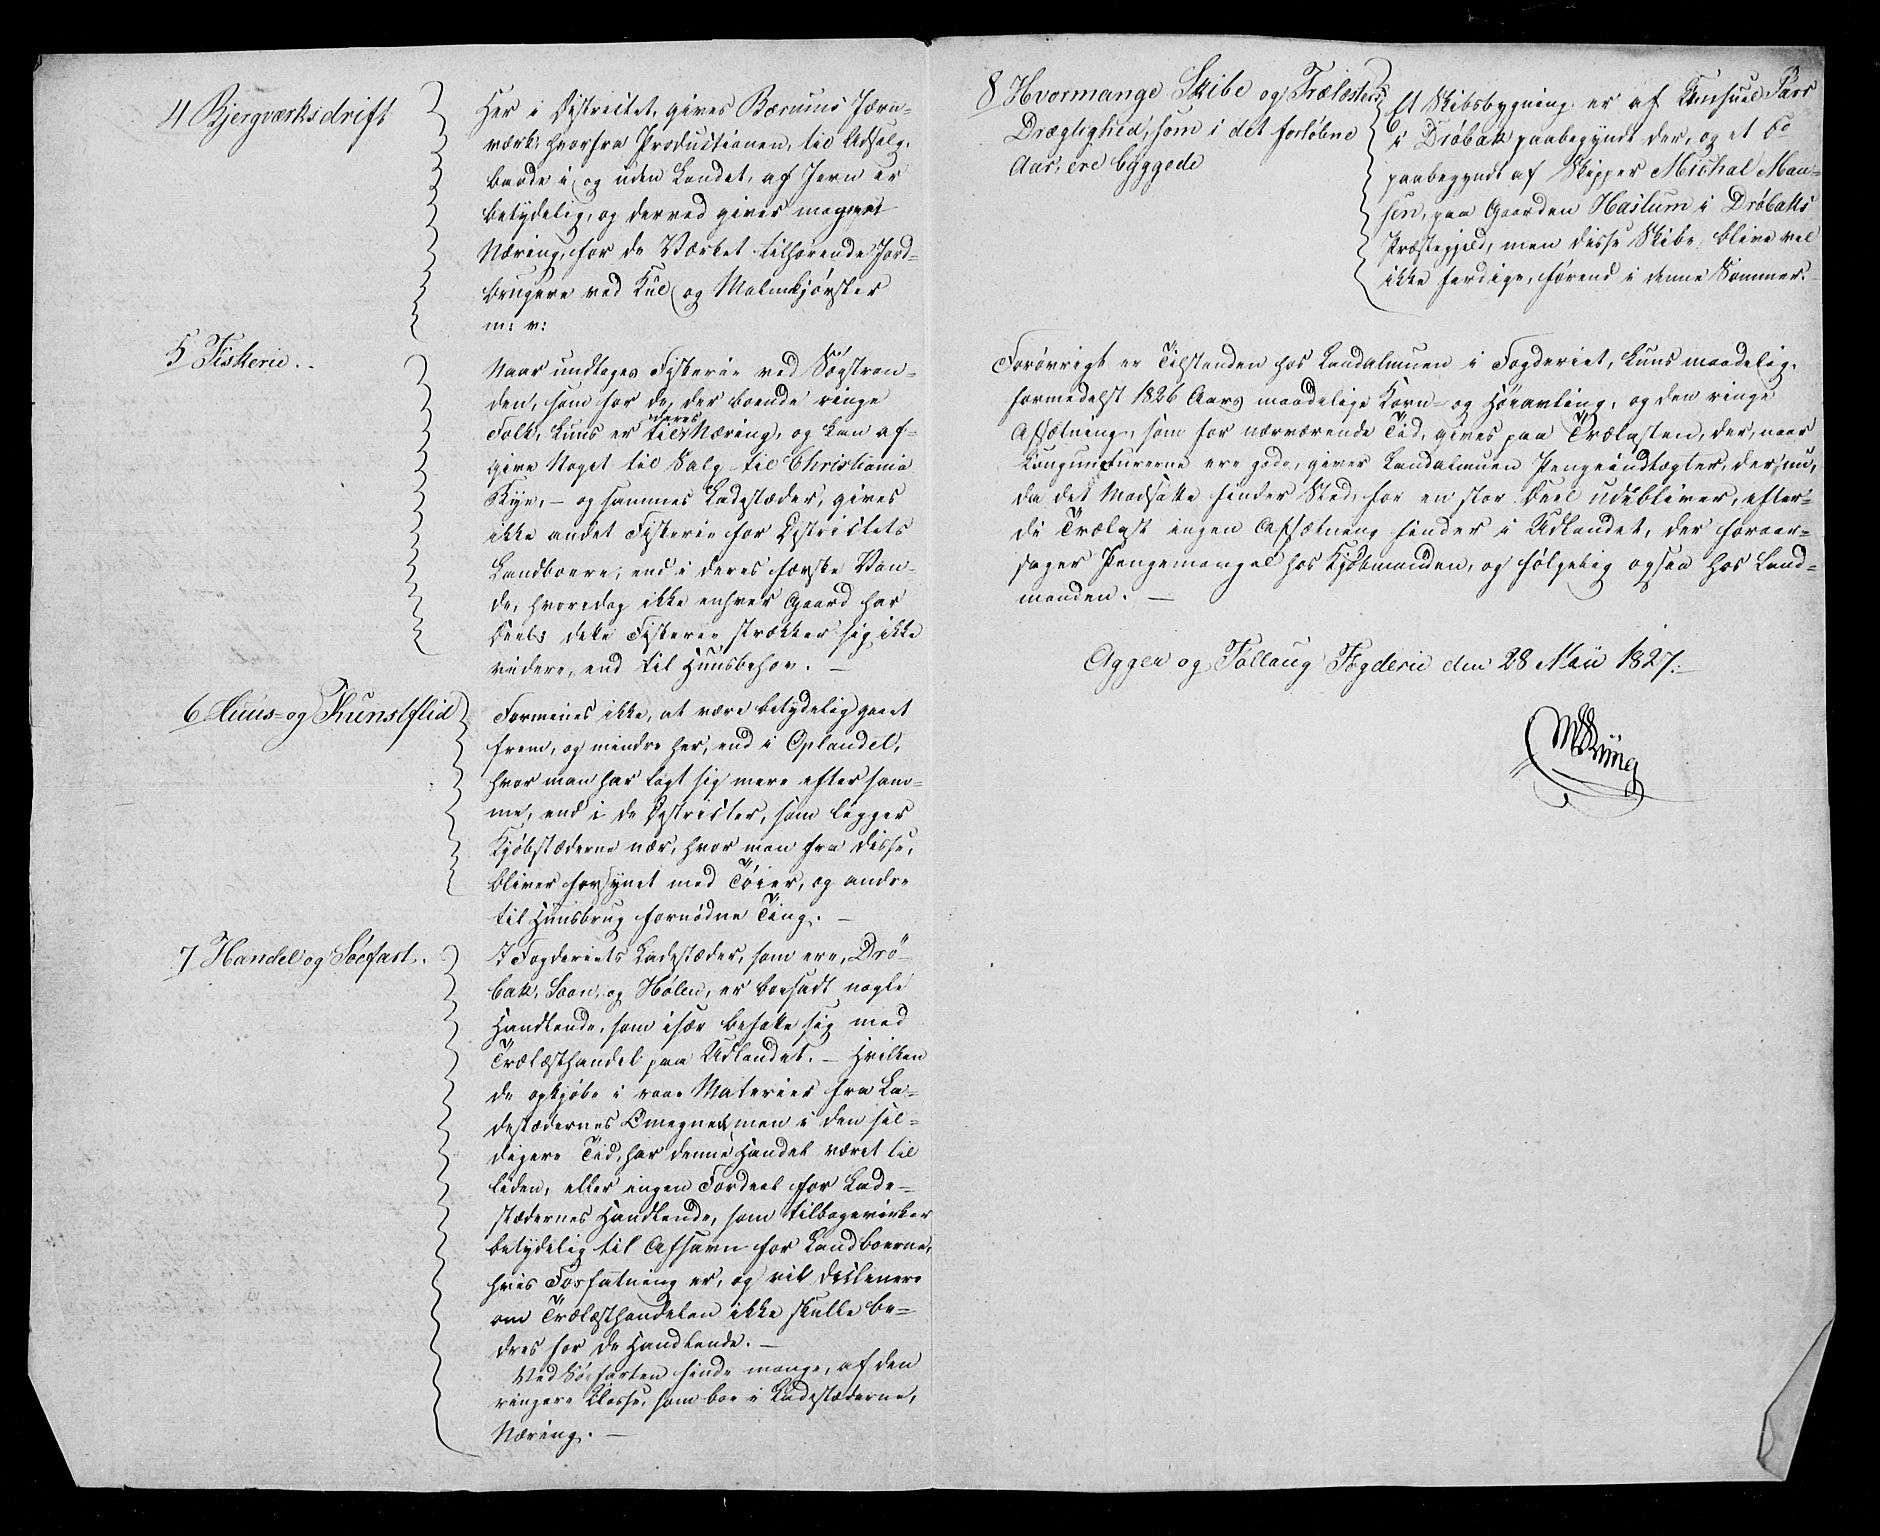 4 Bjergværksdrift
Her i Distrietet, gives Bærums Jærn-
værk, hvorfra Productionen, til Udsalg,
baade i og uden Landet, af Jern er
betydelig, og derved gives meget
Næring, for de Værket tilhørende Jord-
brugere ved Kul og Malmkjørsler
m: v:
5 Fiskerie.
Naar undtages Fiskerie ved Søestran-
den, som for de, der boende ringe
Folk, kuns er deres Næring, og kan af-
give Noget til Salg til Christiania
Bye, – og sammes Ladestæder, gives
ikke andet Fiskerie for Districtets
Landboere, end i deres færske Van-
de, hvoredog ikke enhver Gaard har
Deel; dette Fiskerie strækker sig ikke
videre, end til Huusbehov. –
6 Huus- og Kunstflid
Formenes ikke, at være betydelig gaaet
frem, og mindre her, end i Oplandet,
hvor man har lagt sig mere efter sam-
me, end i de Districter, som ligger
Kjøbstæderne nær, hvor man fra disse,
bliver forsynet med Tøier, og andre
til Huusbrug fornødne Ting. –
7 Handel og Søefart.
I Fogderiets Ladestæder, som ere, Drö-
bak, Soon, og Hölen, er bosadt nogle
Handlende, som især befatte sig med
Trælasthandel paa Udlandet. – Hvilken
de opkjøbe i raae Materier fra La-
destædernes Omegne, men i den sil-
digere Tid, har denne Handel været til
liden, eller ingen Fordeel for Lade-
stædernes Handlende, som tilbagevirker
betydelig til Afsavn for Landboerne,
hvis Forfatning er, og vil declinere
om Trælasthandelen ikke skulle be-
dres for de Handlende. –
Ved Søefarten finde mange, af den
ringere Classe, som boe i Ladestæderne,
Næring. –
8 Hvormange Skibe og Trælesters
Drægtighed, som i det forløbne
Aar, ere byggede
Et Skibsbygning er af Konsuel Parr
i Dröbak paabegyndt der, og et
paabegyndt af Skipper Michal Man-
sen, paa Gaarden Haslum i Dröbaks
Præstegjæld, men disse Skibe, blive vel
ikke færdige, førend i denne Sommer.
Forövrigt er Tilstanden hos Landalmuen i Fogderiet, kuns maadelig,
formedelst 1826 Aars maadelige Korn- og Høeavling, og den ringe
Afsætning, som for nærværende Tid, gives paa Trælasten, der, naar
Conguncturerne ere gode, giver Landalmuen Pengeindtægter, der, nu,
da det Modsatte finder Sted, for en stor Deel udebliver, efter-
di Trælast ingen Afsætning finder i Udlandet, der foraar-
sager Pengemangel hos Kjøbmanden, og følgelig ogsaa hos Land-
manden. –
Aggers og Follaug Fogderie den 28 Maii 1827. –